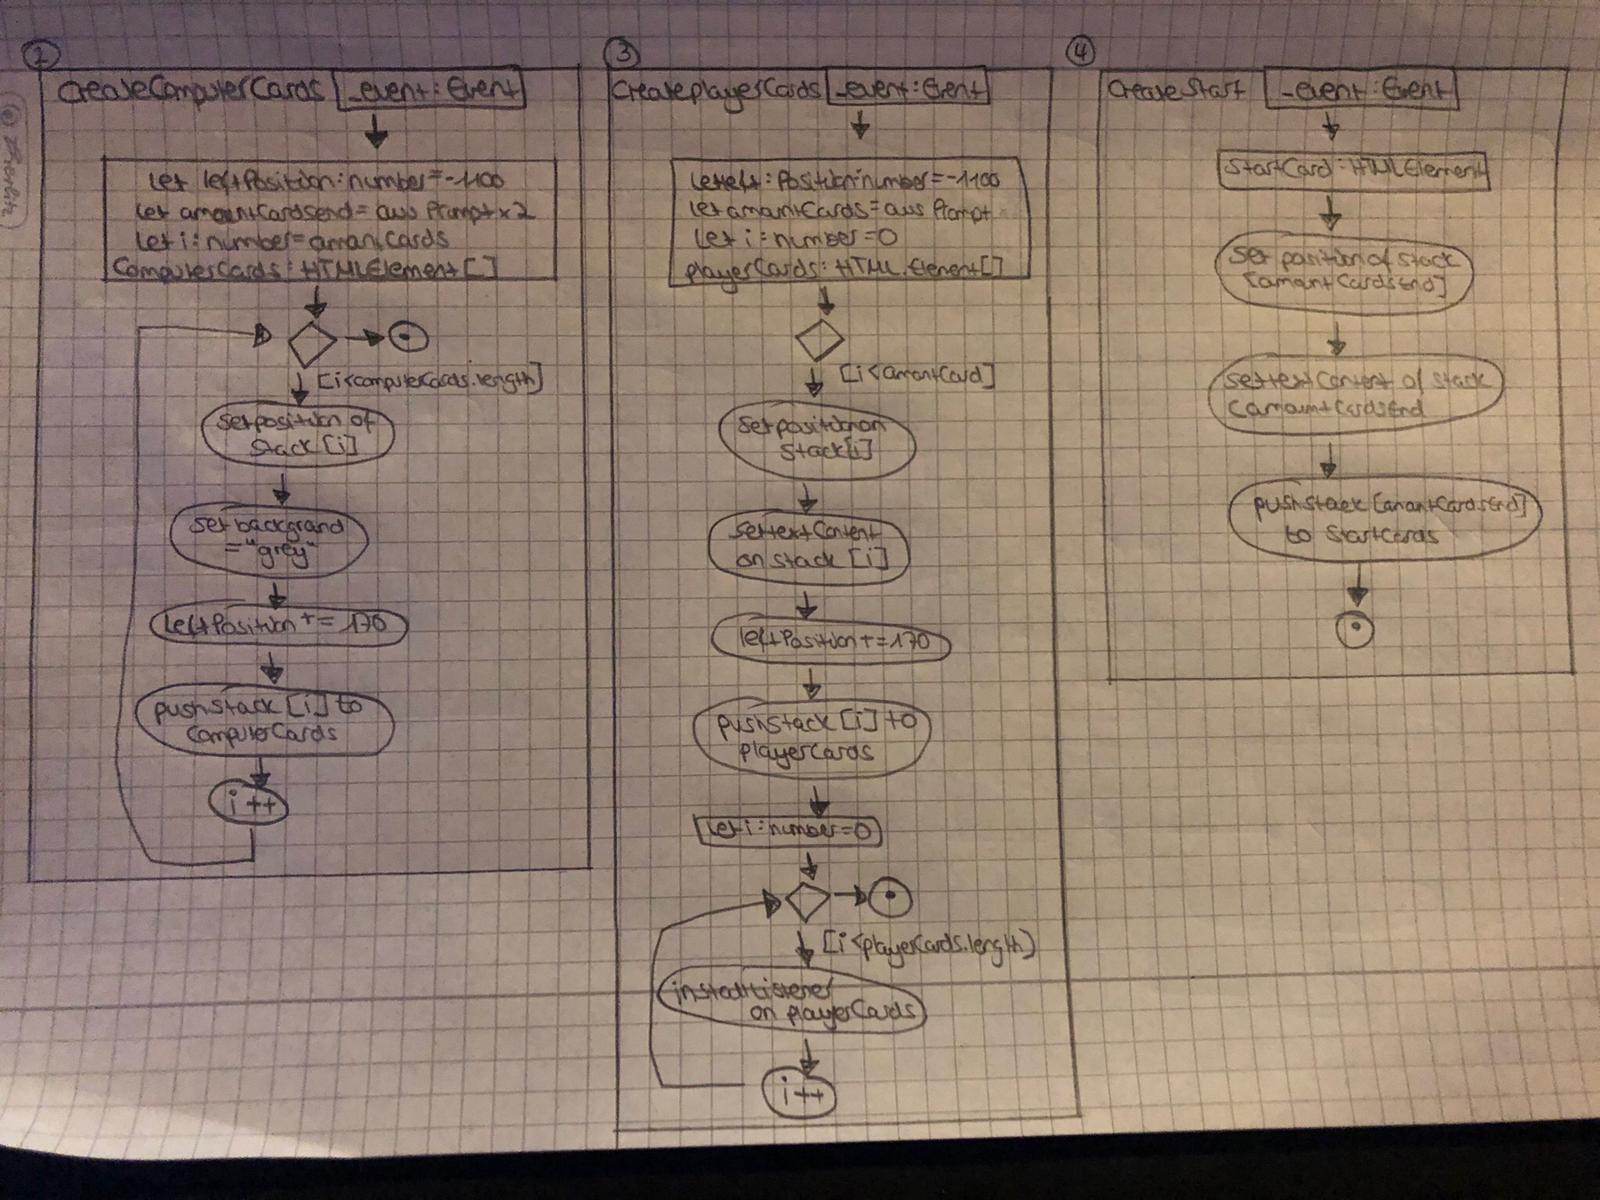 2
CreateComputerCards _event: Event
let leftPosition: number = -1100
let amountCardsend = aus Prompt x 2
let i: number = amantCards
ComputerCards: HTMLElement []
[i < computerCards.length]
set position of
stack [i]
set backgrand
= "grey"
leftPosition += 170
push stack [i] to
ComputerCards
i ++
3
CreateplayerCards _event: Event
let left: Position: number = -1100
let amantCards = aus Prompt
let i: number = 0
playerCards: HTML Element []
[i < amantCard]
set position on
stack [i]
set textContent
on stack [i]
leftPosition += 170
push stack [i] to
playerCards
let i: number = 0
[i < playerCards.length]
install Listener
on playerCards
i ++
4
Create Start _event: Event
StartCard: HTMLElement
set position of stack
[amantCardsEnd]
set textContent of stack
CamountCardsEnd
push stack [amantCardsEnd]
to StartCards